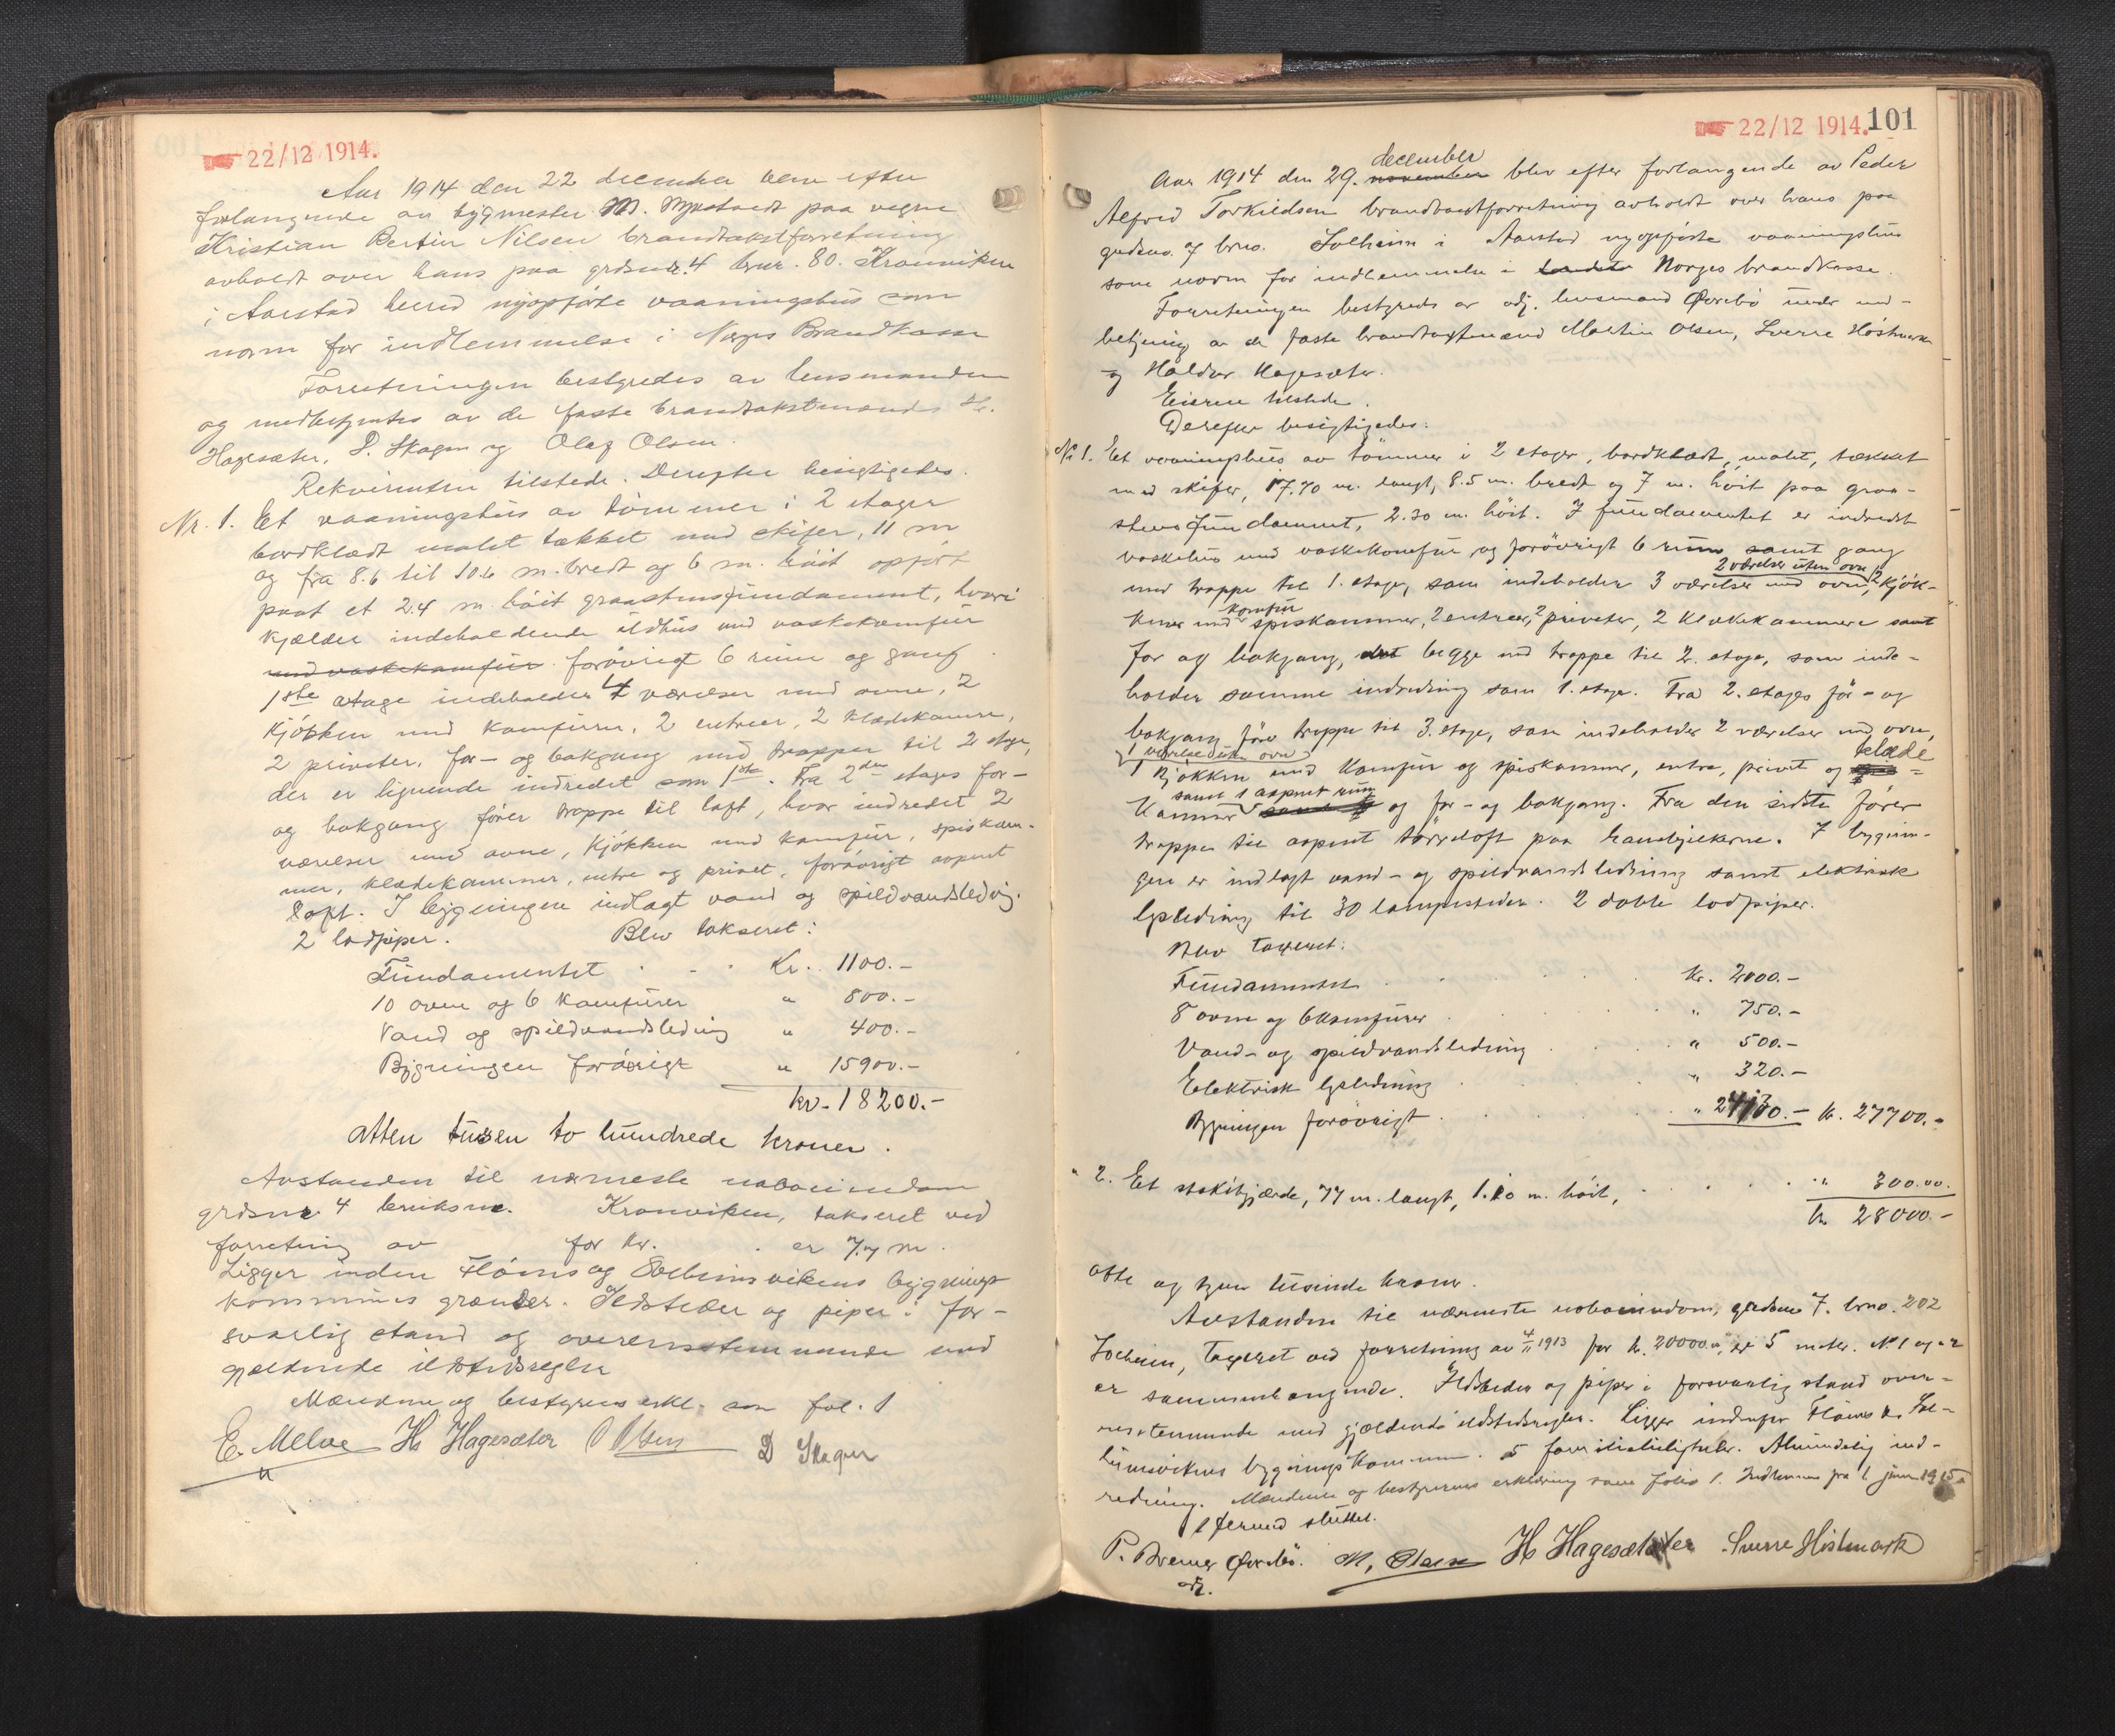 22/12 1914.
Aar 1914 den 22 december blev efter
forlangende av bygmester M. paa vegne
Kristian Bertin Nilsen brandtakstforretning
avholdt over hans paa grdsnr. 4 brnr. 80. Kronviken
i Aarstad herred nyopførte vaaningshus som
norm for indlemmelse i Norges Brandkasse
Forretningen bestyredes av lensmanden
og medbetjentes av de faste brandtakstmænd H.
Hagesæter, D. Skagen og Olaf Olsen.
Rekvirenten tilstede. Derefter besigtigedes.
Nr. 1. Et vaaningshus av tømmer i 2 etager
bordklædt malet tækket med skifer, 11 m
og fra 8.6 til 10.6 m. bredt og 6 m. høit opført
paa et 2.4 m. høit graastensfundament, hvori
kjælder indeholdende ildhus med vaskekomfur
med vaskekomfur forøvrigt 6 rum og gang.
1ste etage indeholder 4 værelser med ovne, 2
kjøkken med komfurer, 2 entreer, 2 klædekamre,
2 priveter, for- og bakgang med trapper til 2 etage,
der er lignende indredet som 1ste. Fra 2den etages for-
og bakgang fører trappe til loft, hvor indredet 2
værelser med ovne, kjøkken med komfur, spiskam-
mer, klædekammer, entre og privet, forøvrigt aapent
loft. I bygningen indlagt vand og spildvandsledning.
2 lodpiper. Blev takseret:
Fundamentet Kr. 1100.-
10 ovne og 6 komfurer " 800.-
Vand og spildvandsledning " 400.-
Bygningen forøvrigt " 15900.-
kr. 18200.-
Atten tusen to hundrede kroner.
Avstanden til nærmeste naboeiendom
grdsnr. 4 bruksnr. Kronviken, takseret ved
forretning av for kr. er 7.7 m.
Ligger inden Fløens og Solheimsvikens bygnings-
kommunes grænser. Ildsteder og piper i for-
svarlig stand og overensstemmende med
gjældende ildstedsregler
Mændene og bestyrerens erkl. som fol. 1
E. Melve H. Hagesæter O Olsen D Skagen
22/12 1914. 101
december
Aar 1914 den 29. november blev efter forlangende av Peder
Alfred Torkildsen brandtaxtforretning avholdt over hans paa
gardsno. 7 brno. Solheim i Aarstad nyopførte vaaningshus
som norm for indlemmelse i landets Norges brandkasse.
Forretningen bestyreds av adj. lensmand Øvrebø under med-
betjening av de faste brandtaxtmænd Martin Olsen, Sverre Høstmark
og Haldor Hagesæter.
Eieren tilstede.
Derefter besigtigedes:
No 1. Et vaaningshus av tømmer i 2 etager, bordklædt, malet, tækket
med skifer, 17.70 m. langt, 8.5 m. bredt og 7 m. høit paa graa-
stensfundament, 2.30 m. høit. I fundamentet er indredet
vaskehus med vaskekomfur og forøvrigt 6 rum samt gang
2 værelser uten ovn
med trappe til 1. etage, som indeholder 3 værelser med ovn, 2 kjøk-
komfur
kener med spiskammer, 2 entreer, 2 priveter, 2 klædekammere samt
for og bakgang, begge med trappe til 2. etage, som inde-
holder samme indredning som 1. etage. Fra 2. etages for- og
bakgang fører trappe til 3. etage, som indeholder 2 værelser med ovn,
1 værelse uten ovn
1 kjøkken med komfur og spiskammer, entre, privet og klæde
samt 1 aapent rum
kammer og for- og bakgang. Fra den sidste fører
trappe til aapent tørreloft paa hanebjelkerne. I bygnin-
gen er indlagt vand- og spildvandsledning samt elektrisk
lysledning til 30 lampesteder. 2 doble lodpiper.
Blev taxeret:
Fundamentet kr. 2000.-
8 ovne og 6 komfurer " 750.-
Vand- og spildvandsledning " 500.-
Elektrisk lysledning " 320.-
Bygningen forøvrigt " 24130.- kr. 27700.-
" 2. Et stakitgjærde, 77 m. langt, 1.10 m. høit, " 300.00.
kr. 28000.-
otte og tyve tusinde kroner.
Avstanden til nærmeste naboeiendom, gardsno 7. brno. 202
Solheim, taxeret ved forretning av 4/11 1913 for kr. 20000.00, er 5 meter. No 1 og 2
er sammenhængende. Ildsteder og piper i forsvarlig stand over-
ensstemmende med gjældende ildstedsregler. Ligger indenfor Fløens & Sol-
heimsvikens bygningskommune. 5 familieleiligheter. Almindelig ind-
redning. Mændene og bestyrerens erklæring som folio 1. Indlemmes fra 1 januar 1915
sluttet.
P. Bremer Øvrebø. M. Olsen H. Hagesæter Sverre Høstmark
adj.